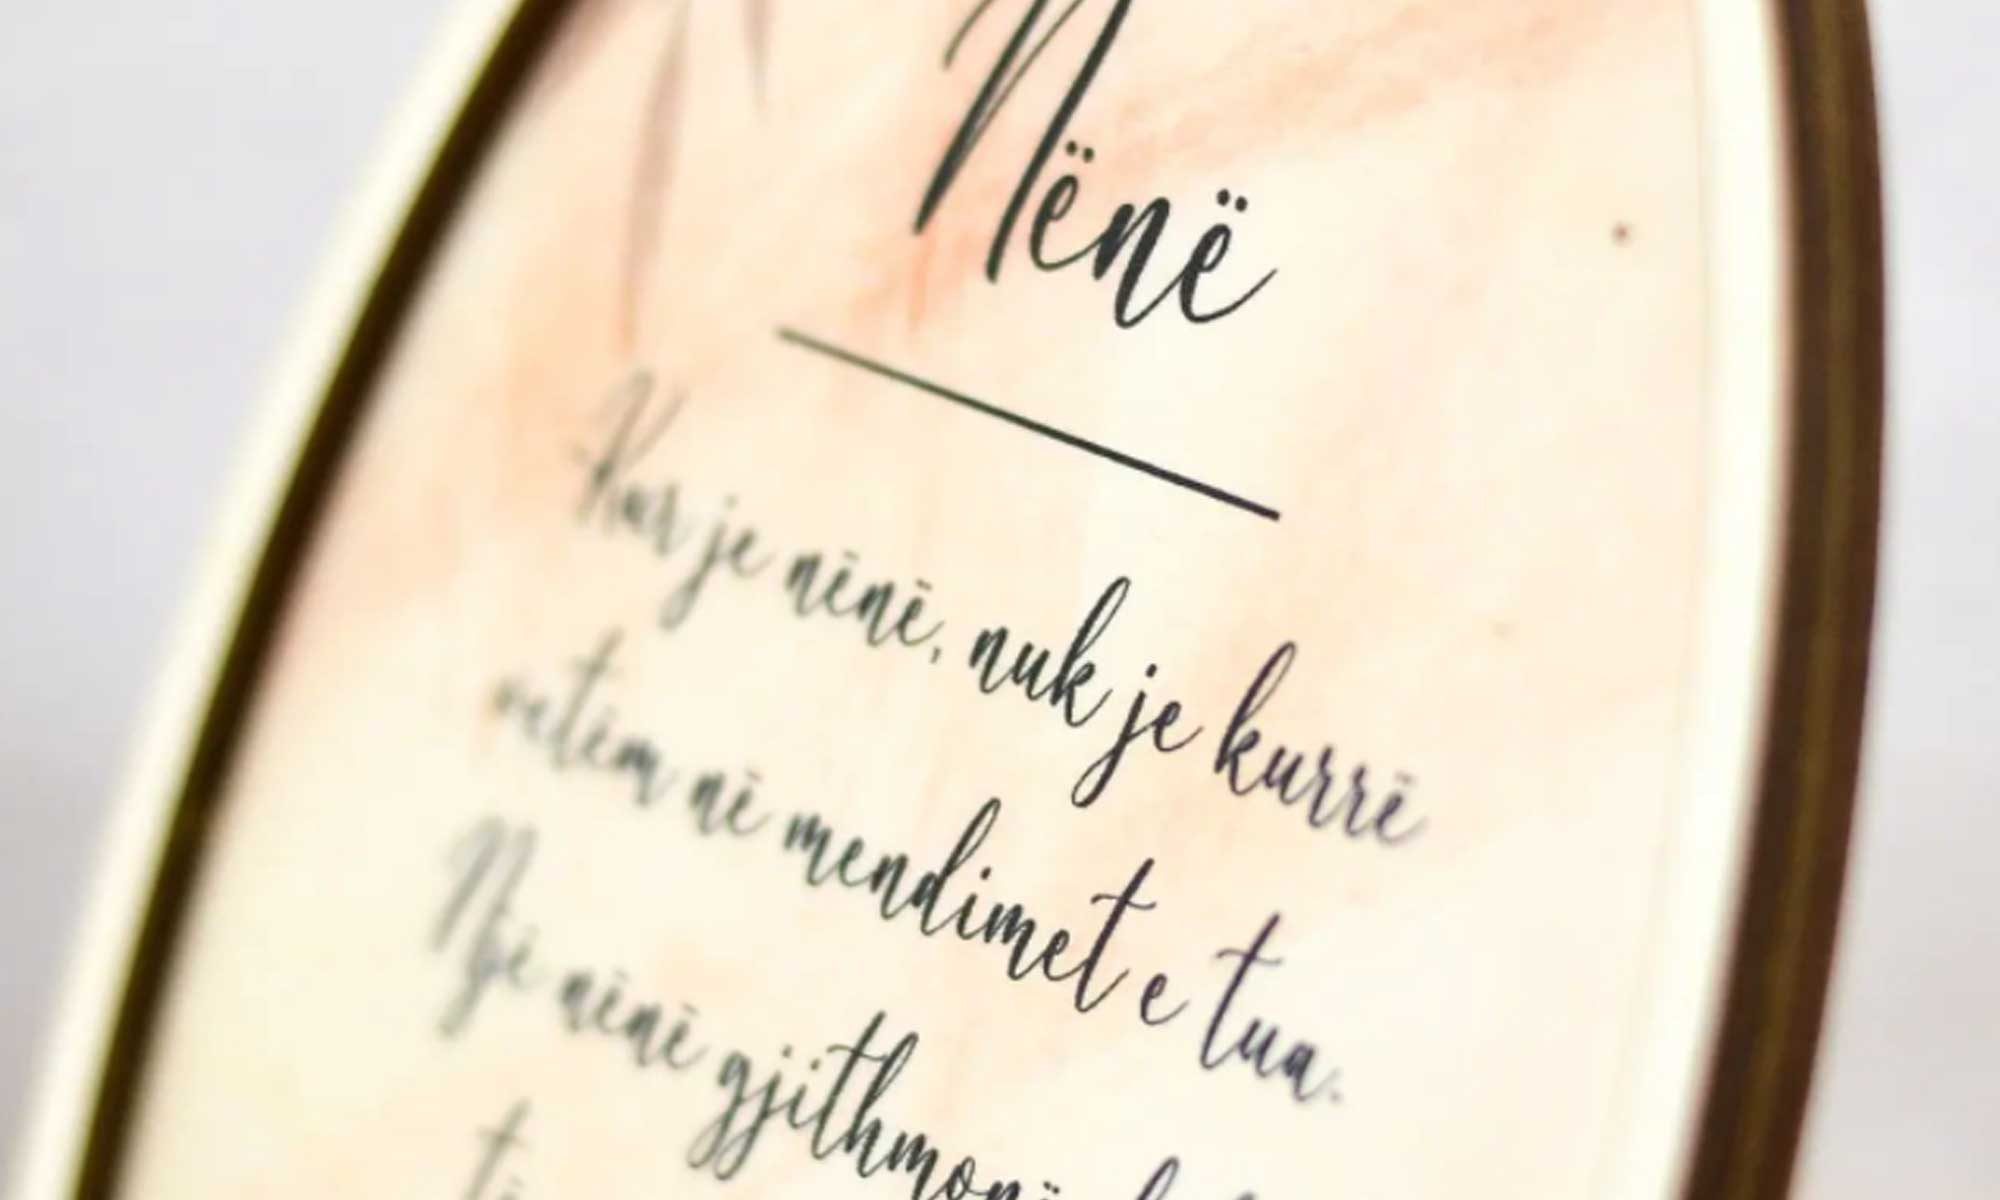 Nënë
Kur je nënë, nuk je kurrë
vetëm në mendimet e tua.
Një nënë gjithmonë